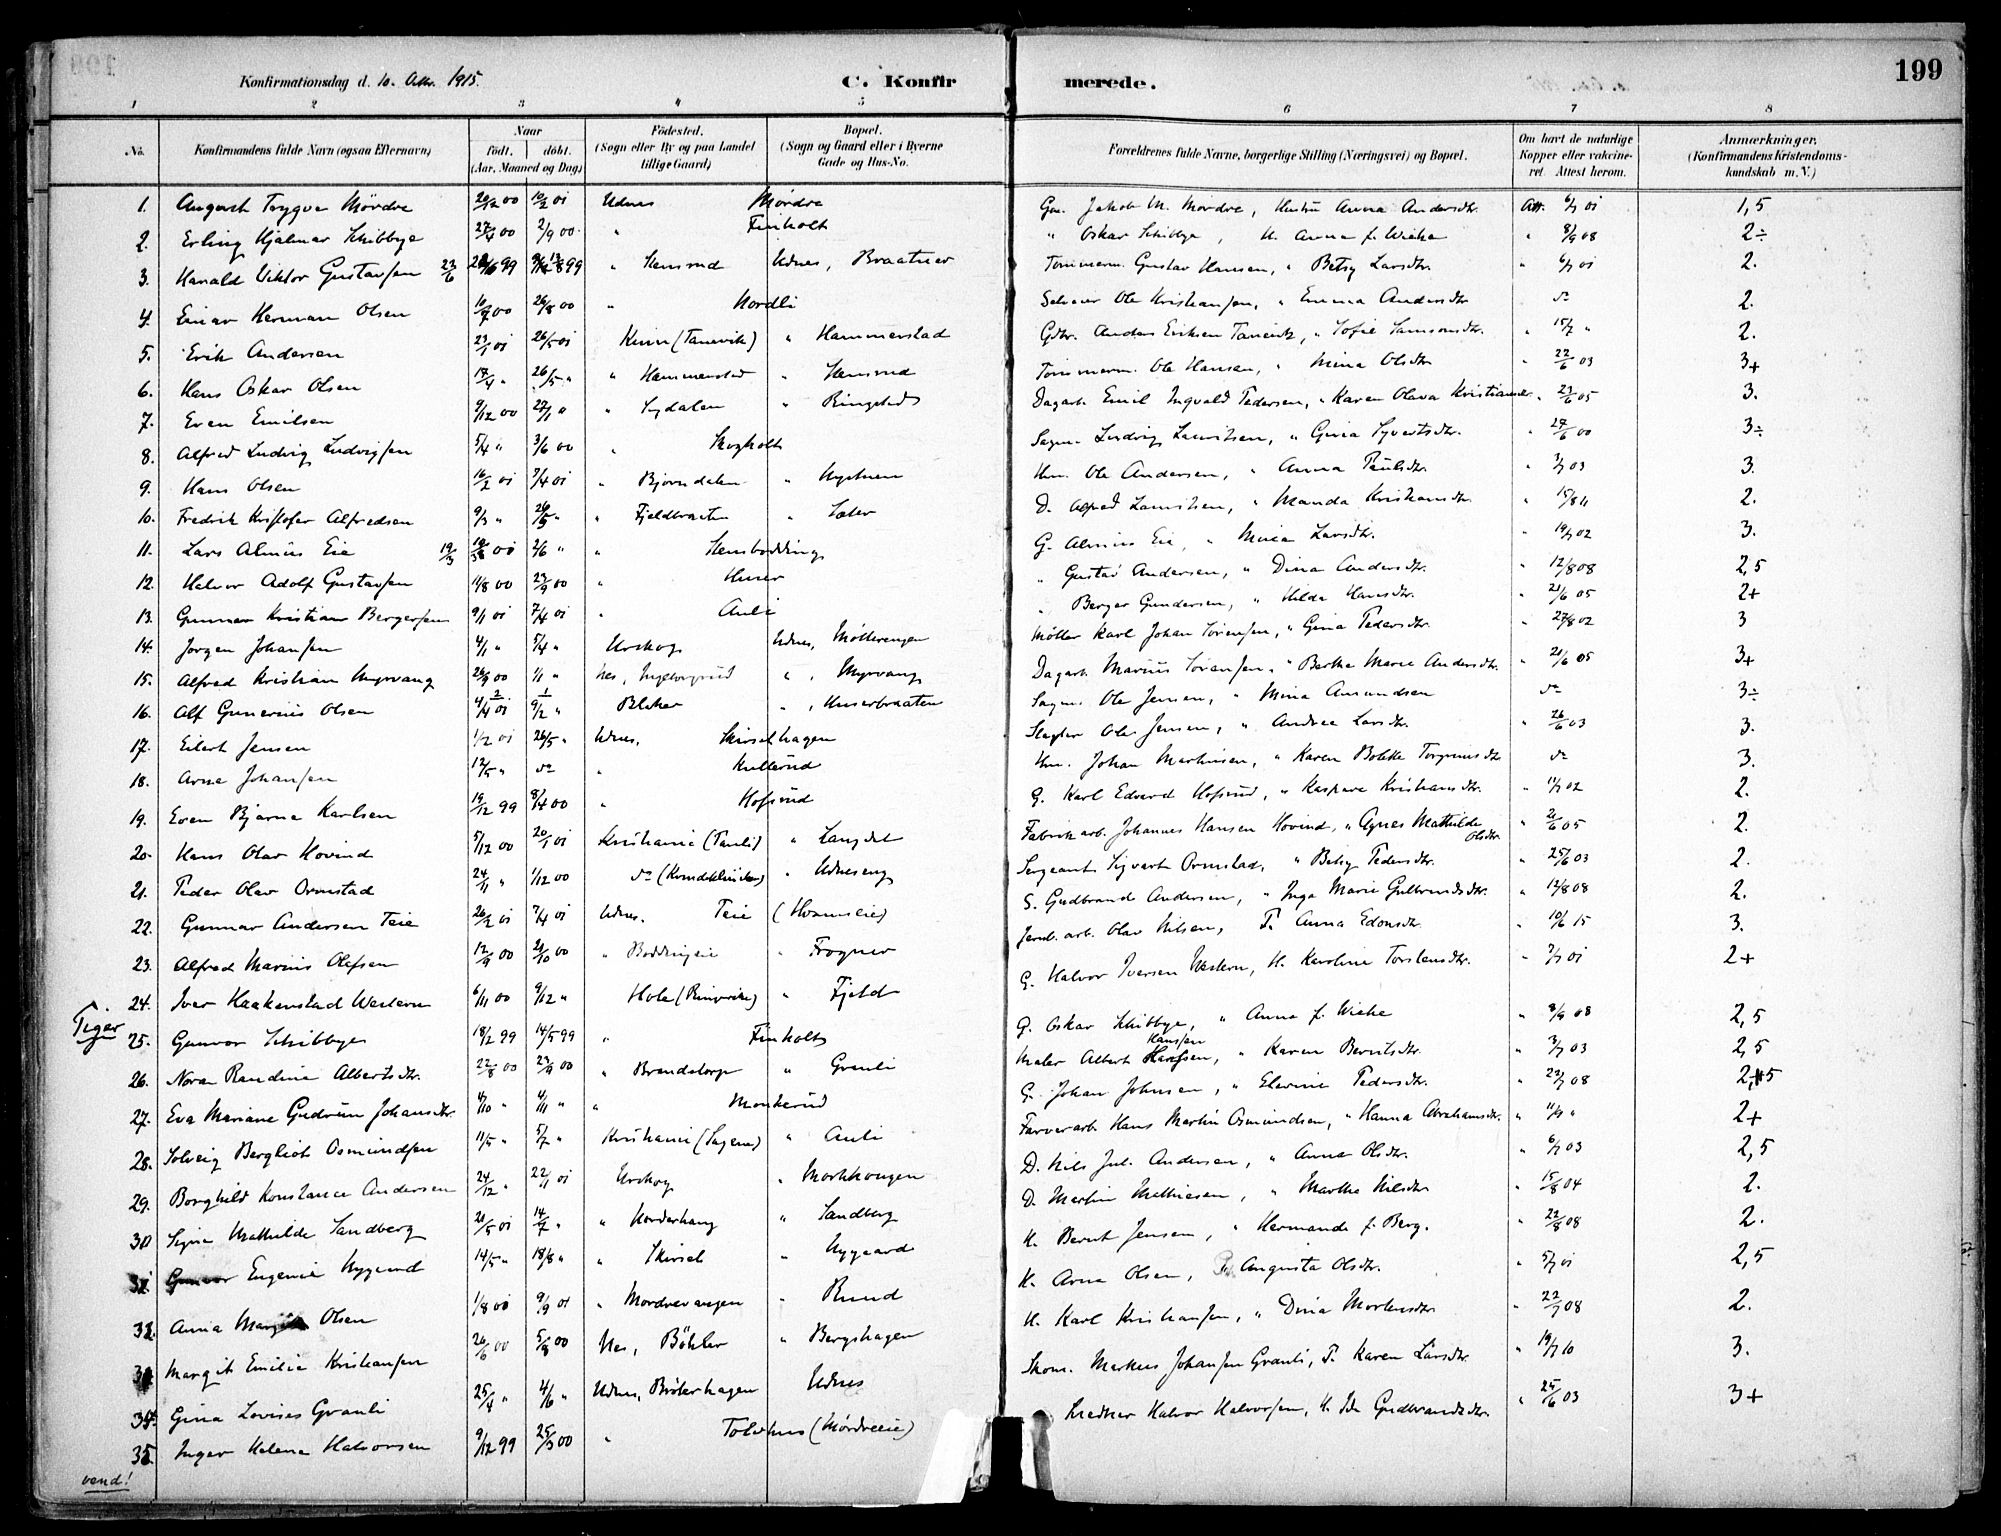 199
Konfirmationsdag d. 10. Oktr. 1915.
C. Konfir merede.
1 2 3 4 5 6 7 8
No.
Konfirmandens fulde Navn (ogsaa Efternavn)
Naar
födt. döbt.
(Aar, Maaned og Dag)
Födested.
(Sogn eller By og paa Landet tillige Gaard)
Bopæl.
(Sogn og Gaard eller i Byerne Gade og Hus-No.
Forældrenes fulde Navne, borgerlige Stilling (Næringsvei) og Bopæl.
Om havt de naturlige Kopper eller vakcineret. Attest herom.
Anmærkninger.
(Konfirmandens Kristendomskundskab m. V.)
1. August Trygve Mördre 20/12 00 10/2 01 Udnes Mördre Jakob M. Mördre, Hustru Anna Andersdtr. Att. 6/7 01 1,5
2. Erling Hjalmar Schibbye 27/4 00 2/9 00 " Finholt " Oskar Schibbye, H. Anna f. Wiehe " 8/9 08 2÷
3. Harald Viktor Gustavsen 23/6 99 13/8 99 " Hemsrud Udnes, Braatner Tömmerm. Gustav Hansen, " Betsy Larsdtr. " 6/7 01 2.
4. Einar Herman Olsen 10/7 00 26/8 00 " Nordli Ole Kristiansen, " Emma Andersdtr. do 2.
5. Erik Andersen 23/1 01 26/5 01 (Tanevik) " Hammerstad Gdr. Anders Eriksen Tanevik, " Sofie Samsonsdtr. " 15/7 " 2.
6. Hans Oskar Olsen 17/4 " 26/5 " " Hammerstad " Hemsrud Tömmerm. Ole Hansen, " Mina Olsdtr. " 22/6 03 3+
7. Even Emilsen 9/12 00 27/1 " " " Ringstad Dagarb. Emil Ingvald Pedersen, " Karen Olava Kristiansdr. " 23/6 05 3.
8. Alfred Ludvig Ludvigsen 5/4 " 3/6 00 " Skogholt Ludvig Lauritsen, " Gina Syvertsdtr. " 27/6 00 3÷
9. Hans Olsen 16/2 01 7/4 01 " Björndalen " Hm. Ole Andersen, " Anna Paulsdtr. " 3/7 03 3.
10. Fredrik Kristofer Alfredsen 9/3 " 26/5 " " Fjeldbraaten " D. Alfred Lauritsen, " Manda Kristiansdtr. " 15/8 11 2.
11. Lars Almius Eie 19/3 01 2/6 " " G. Almius Eie, " Mina Larsdtr. " 19/7 02 3.
12. Halvor Adolf Gustavsen 11/8 00 23/9 00 " Huser " Gustav Andersen, " Dina Andersdtr. " 12/8 08 2,5
13. Gunnar Kristian Bergersen 9/1 01 7/4 01 " Auli " Berger Gundersen, " Hilda Hansdtr. " 21/6 05 2+
14. Jörgen Johansen 4/1 " 5/4 " Urskog Udnes, Möllerengen Möller Karl Johan Sörensen, " Gina Pedersdtr. " 27/8 02 3
15. Alfred Kristian Myrvang 26/9 00 1/1 " Nes, " , Myrvang Dagarb. Marius Sörensen, " Berthe Marie Andersdtr. " 21/6 05 3+
16. Alf Gunerius Olsen Blaker " , Huserbraaten Ole Jensen, " Mina Amundsen do 3÷
17. Eilert Jensen 1/2 01 26/5 " Udnes, Skirselhagen Slagter Ole Jensen, " Andrea Larsdtr. " 26/6 03 3.
18. Arne Johansen 12/5 " do " Kullerud Hm. Johan Martinsen, " Karen Bolette do 3.
19. Even Bjarne Karlsen 19/12 99 8/4 00 " Hofsrud G. Karl Edvard Hofsrud, " Kaspara Kristiansdtr. " 11/7 02 2.
20. Hans Olav Hovind 5/12 00 20/1 01 Kristiania " Fabrikarb. Johannes Hansen Hovind, " Agnes Mathilde Olsdtr. " 21/6 05 2.
21. Peder Olav Ormstad 24/11 " 1/12 00 do " Udneseng Sergeant Sigvart Ormstad, " Betsy Pedersdtr. " 25/6 03 2.
22. Gunnar Andersen Teie 26/2 01 7/4 01 Udnes. Teie G. Gudbrand Andersen, " Inga Marie Gulbrandsdtr. " 12/8 08 2.
23. Alfred Marius Olafsen 12/9 00 21/10 00 " Boddingeie " Frogner Jernb. arb. Olav Nilsen, F. Anna Edonsdtr. " 10/6 15 3.
24. Iver Haakenstad Western 6/11 00 9/12 " Hole (Ringerike) " Fjeld G. Halvor Iversen Western, H. Karoline Torstensdtr. " 7/7 01 2+
Piger
25. Gunvor Schibbye 18/2 99 14/5 99 " Finholt G. Oskar Schibbye, " Anna f. Wiehe " 8/9 08 2,5
26. Nora Randine Albertsdtr. 22/8 00 23/9 00 " Brandstorp " Granli Maler Albert Hansen, " Karen Berntsdtr. " 3/7 03 2,5
27. Eva Mariane Gudrun Johansdtr. 4/10 " 4/11 " " Monkerud G. Johan Johnsen, " Elevine Pedersdtr. " 22/7 08 2,5
28. Solveig Bergliot Osmundsen 11/5 " 5/7 " Kristiania (Sagene) " Auli Farverarb. Hans Martin Osmundsen, " Hanna Abrahamsdtr. " 11/9 " 2+
29. Borghild Konstance Andersen 24/12 " 22/1 01 Urskog " D. Nils Jul. Andersen, " Anna Olsdtr. " 6/7 03 2,5
30 Signe Mathilde Sandberg 21/5 01 14/7 " " Norderhaug " Sandberg D. Martin Mathiesen, " Marthe Nilsdtr " 15/8 04 2.
31 Gunvor Eugenie Nygaard 14/5 " 18/8 " " Skirsel " Nygaard H. Bernt Jensen, " Hermande f. Berg. " 22/8 08 2.
32. Anna Margit Olsen 1/8 00 9/9 01 " Mordrevangen " Ruud H. Arne Olsen, Augusta Olsdtr. " 5/7 01 2,5
Margit Emilie Kristiansen 26/6 00 5/8 00 Nes, Böhler " Bergshagen H. Karl Kristiansen, " Dina Mortensdtr " 22/7 08 2.
34. Gina Lovise Granli 25/4 " 4/6 " Udnes, Bröterhagen Udnes Skom. Markus Johansen Granli, F. Karen Larsdtr. " 19/7 10 3.
35. Inger Helene Halvorsen 9/12 99 25/3 00 " (Mördreeie) Halvor Halvorsen, H. Ida Gudbrandsdtr. " 25/6 03 3+
vend!